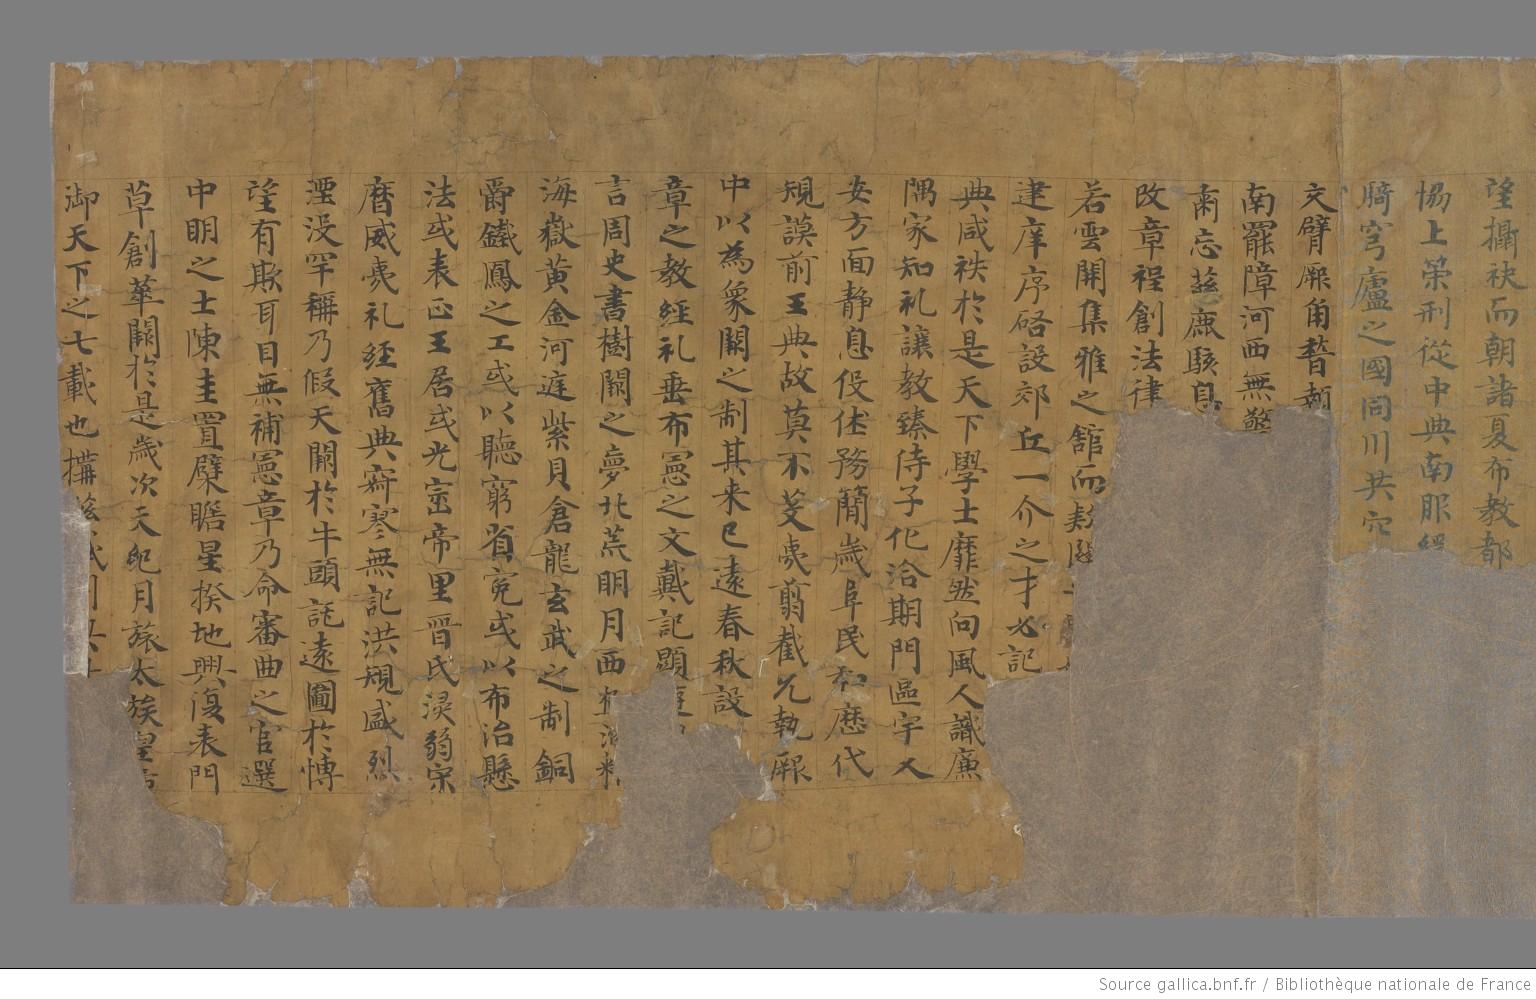 望攝袂而朝諸夏布教都
協上策刑從中典南服
騎穹廬之國同川共穴
交臂厥角暬
南罷障河西無
肅忘慈鹿駭息
改章程創法律
若雲開集雅之舘而
建庠序硌設郊丘一介之才必記
典咸袟於是天下學士靡然向風人識廉
隅家知礼讓教臻侍子化洽期門區宇乂
安方面静息役休務簡歲阜民和歷代
規謨前王典故莫不芟夷翦截允執厥
中以為象闕之制其来已遠春秋設
章之教經礼垂布憲之文戴記顯
言周史書樹闕之夢北荒明月西
海嶽黃金河庭紫貝倉龍玄武之制銅
爵鐵鳳之工或以聽窮省冤或以布治懸
法或表正王居或光崇帝里晋氏浸弱宋
曆威夷礼經舊典寂寥無記洪規盛烈
湮没罕稱乃假天闕於牛頭託遠圖於博
望有欺耳目無補憲章乃命審曲之官選
中明之士陳圭置臬瞻星揆地興復表門
草創華闕於是歲次天紀月旅太蔟皇
御天下之七載也搆
Source gallica.bnf.fr / Bibliothèque nationale de France